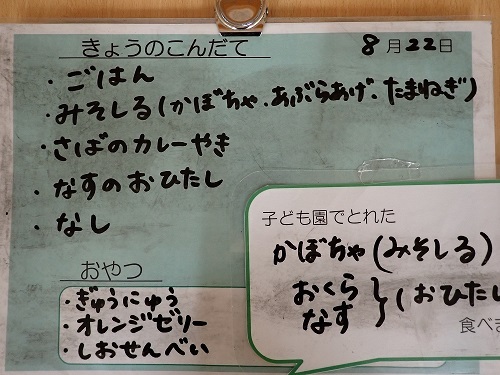 きょうのこんだて
8月22日
・ごはん
・みそしる(かぼちゃ・あぶらあげ・たまねぎ)
・さばのカレーやき
・なすのおひたし
・なし
おやつ
・ぎゅうにゅう
・オレンジゼリー
・しおせんべい
子ども園でとれた
かぼちゃ(みそしる)
おくら
なす
(おひたし
食べま